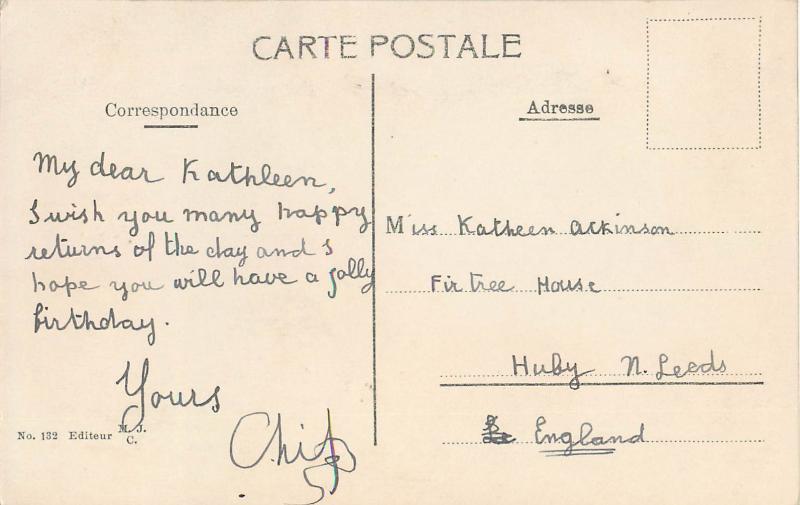 CARTE POSTALE
Correspondance
My dear Kathleen,
I wish you many happy
returns of the day and I
hope you will have a jolly
birthday.
Yours
No. 132 Editeur M. J. C.
Adresse
Miss Katheen Atkinson
Fir tree House
Huby N. Leeds
England